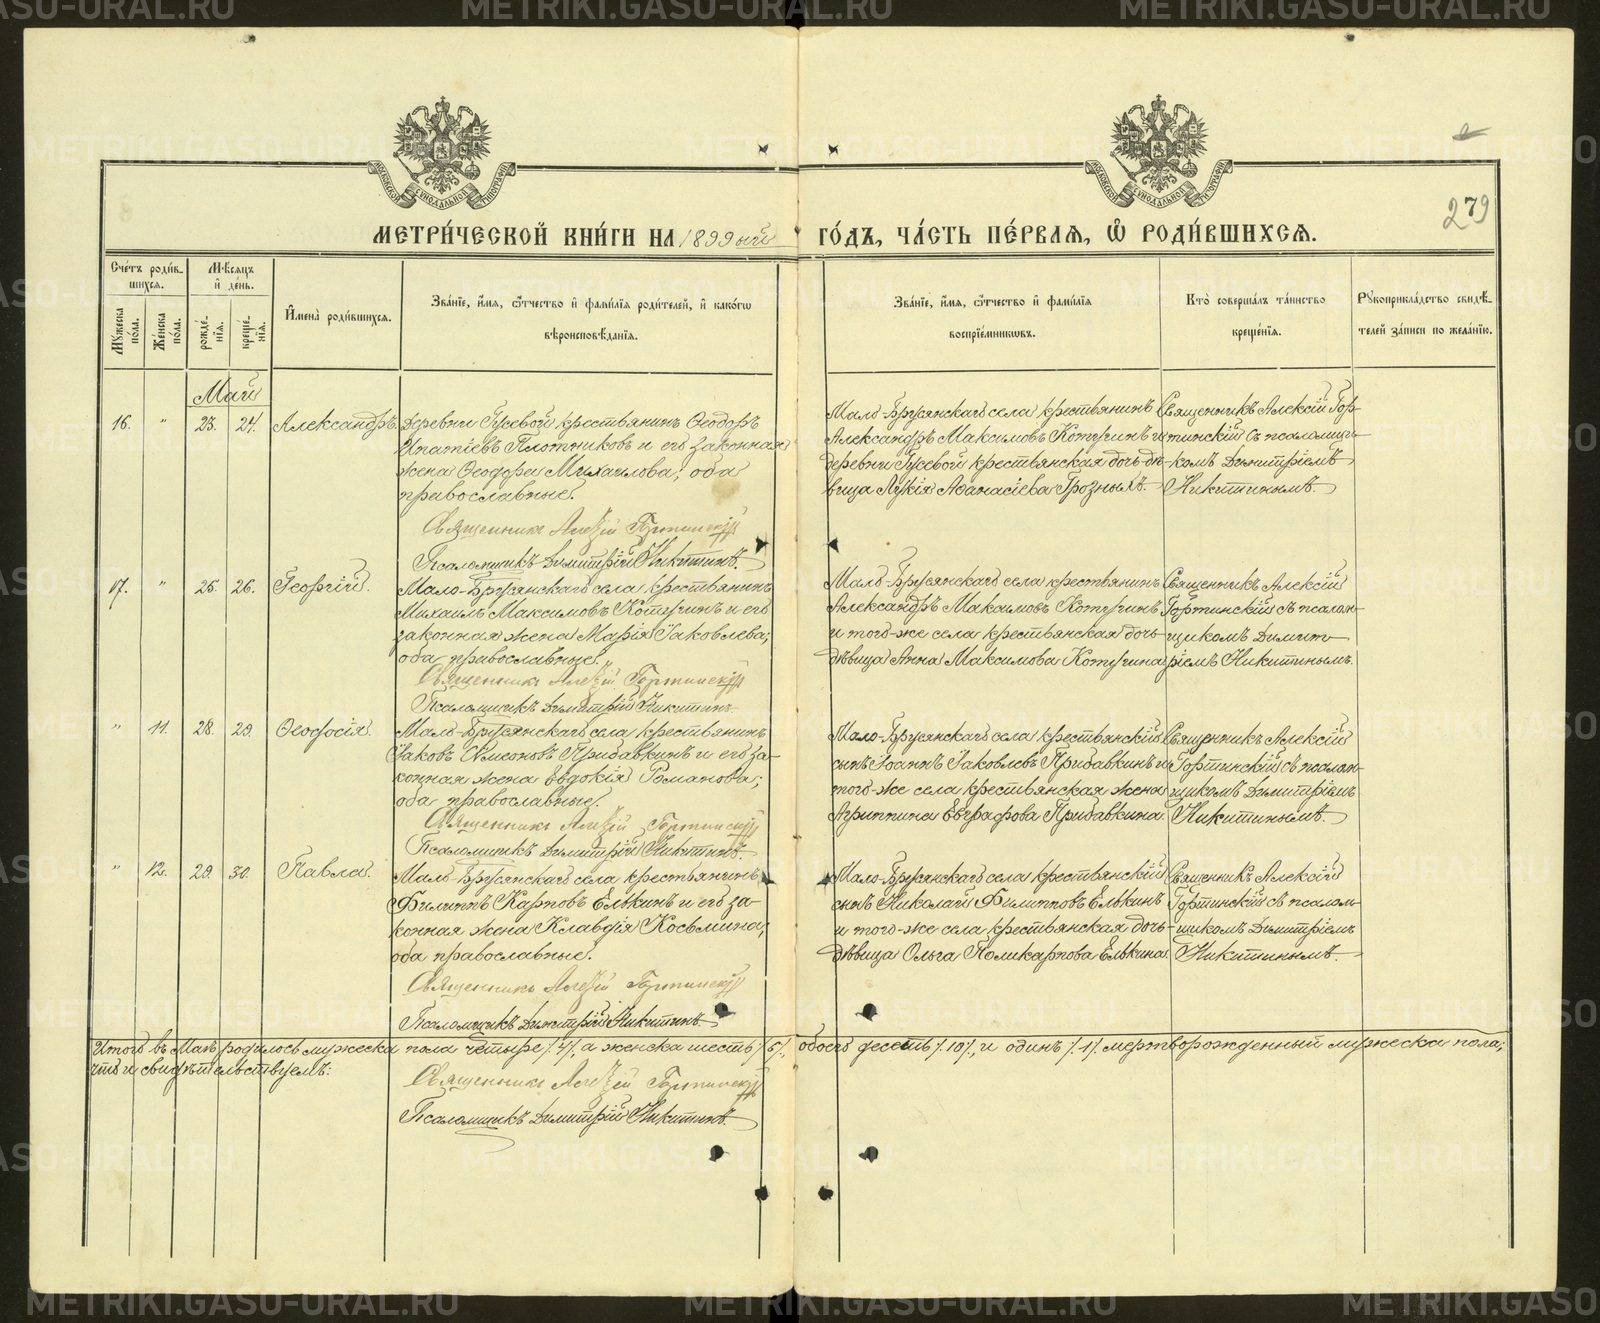 МЕТРИ́ЧЕСКОЙ КНИ́ГИ НА 1899 ый ГО́ДЪ, ЧА́СТЬ ПЕ́РВАЯ, Ѽ РОДИ́ВШИХСЯ.
279
Сче́тъ роди́в-
шихся.
Му́жеска по́ла.
Же́нска по́ла.
Мѣ́сяцъ
и де́нь.
рожде́-
нія.
креще́-
нія.
Имена̀ роди́вшихся.
Зва́ніе, и́мя, ѻ҆́тчество и фами́лія роди́телей, и како́гѡ
вѣроисповѣ́данія.
Зва́ніе, и́мя, ѻ҆́тчество и фами́лія
воспріе́мниковъ.
Кто̀ соверша́лъ та́инство
креще́нія.
Рукоприкла́дство свидѣ́-
телей за́писи по жела́нію.
Май
16. " 23. 24. Александръ.
Деревни Гусевой крестьянинъ Ѳеодоръ
Ипатіевъ Плотниковъ и его законная
жена Ѳеодора Михаилова; оба
православные.
Священникъ Алексій Гортинскій
Псаломщикъ Димитрій Никитинъ.
Мало-Брусянскаго села крестьянинъ
Александръ Максимовъ Котугинъ и
деревни Гусевой крестьянская дочь дѣ-
вица Лукія Аѳанасіева Грозныхъ.
Священникъ Алексій Гор-
тинскій съ псаломщи-
комъ Димитріемъ
Никитинымъ.
17. " 25. 26. Георгій.
Мало-Брусянскаго села крестьянинъ
Михаилъ Максимовъ Котугинъ и его
законная жена Марія Іаковлева;
оба православные.
Священникъ Алексій Гортинскій
Псаломщикъ Димитрій Никитинъ.
Мало-Брусянскаго села крестьянинъ
Александръ Максимовъ Котугинъ
и того-же села крестьянская дочь
дѣвица Анна Максимова Котугина
Священникъ Алексій
Гортинскій съ псалом-
щикомъ Димит-
ріемъ Никитинымъ.
" 11. 28. 29. Ѳеодосія.
Мало-Брусянскаго села крестьянинъ
Іаковъ Симеоновъ Прибавкинъ и его за-
конная жена Евдокія Романова;
оба православные.
Священникъ Алексій Гортинскій
Псаломщикъ Димитрій Никитинъ.
Мало-Брусянскаго села крестьянскій
сынъ Іоаннъ Іаковлевъ Прибавкинъ и
того-же села крестьянская жена
Агриппина Евграфова Прибавкина
Священникъ Алексій
Гортинскій съ псалом-
щикомъ Димитріемъ
Никитинымъ.
" 12. 29. 30. Павла.
Мало-Брусянскаго села крестьянинъ
Филиппъ Карповъ Елькинъ и его за-
конная жена Клавдія Косьмина;
оба православные.
Священникъ Алексій Гортинскій
Псаломщикъ Димитрій Никитинъ.
Мало-Брусянскаго села крестьянскій
сынъ Николай Филипповъ Елькинъ
и того-же села крестьянская дочь
дѣвица Ольга Поликарпова Елькина
Священникъ Алексій
Гортинскій съ псалом-
щикомъ Димитріемъ
Никитинымъ.
Итого въ Маѣ родилось мужеска пола четыре /.4/., а женска шесть /.6/., обоего десять /.10/., и одинъ /.1/. мертворожденный мужеска пола;
что и свидѣтельствуемъ:
Священникъ Алексій Гортинскій
Псаломщикъ Димитрій Никитинъ.
METRIKI.GASU-URAL.RU